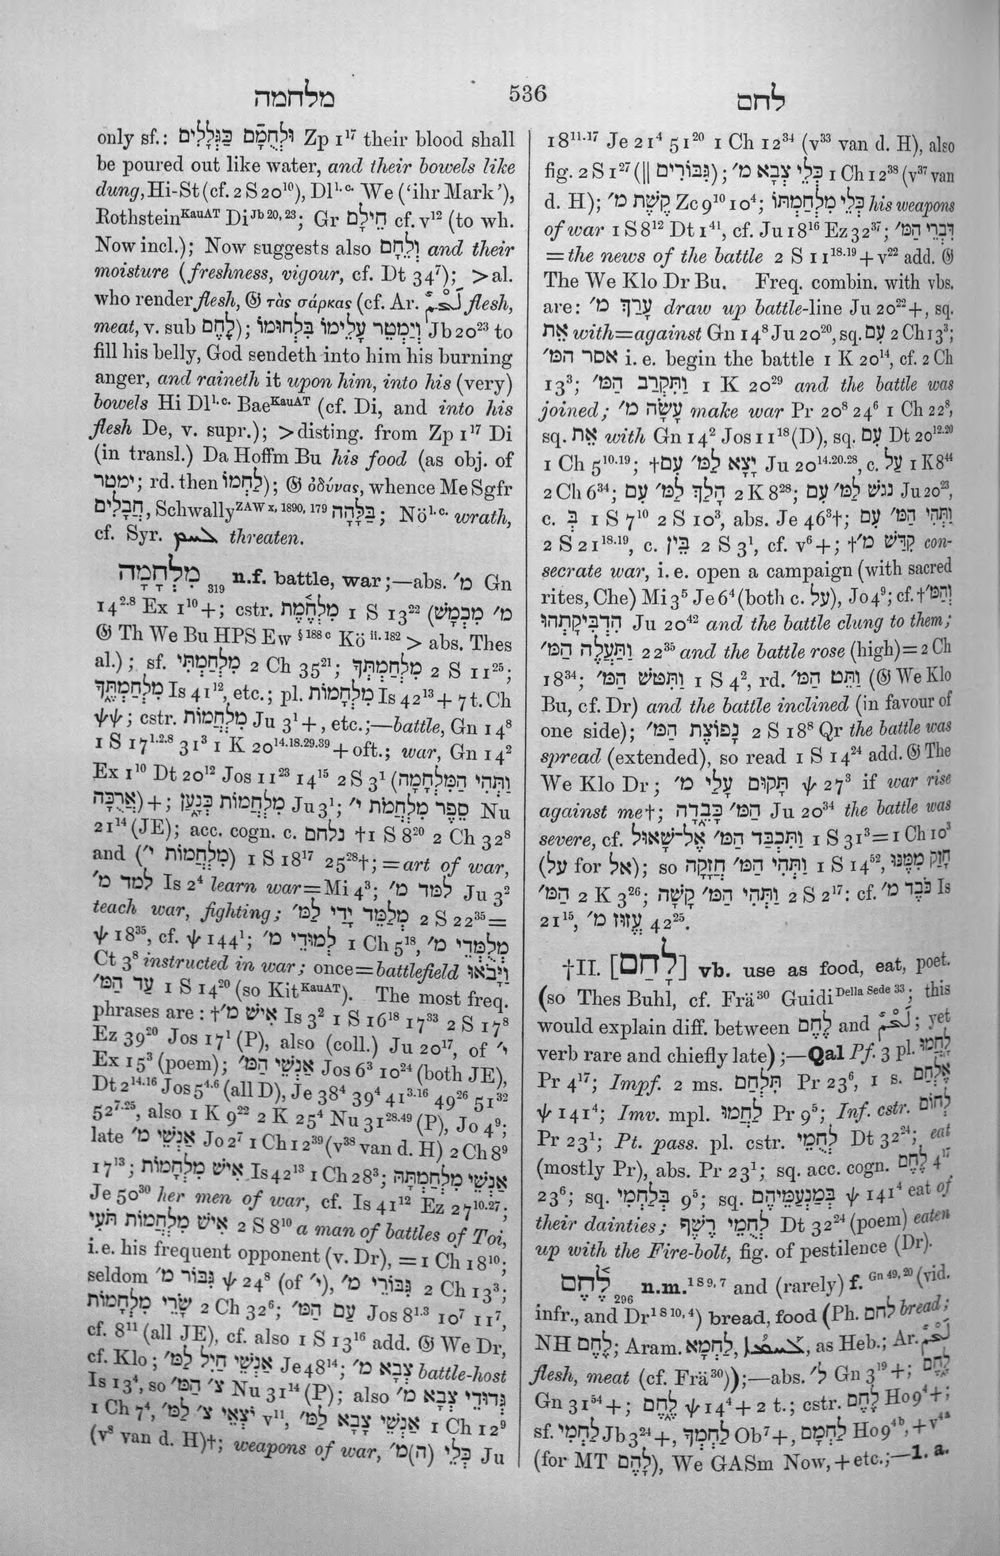 מלחמה
536
לחם
only sf.: וּלְחֻמָּם כַּגְּלָלִים Zp 1¹⁷ their blood shall
be poured out like water, and their bowels like
dung, Hi-St (cf. 2 S 20¹⁰), Dl¹·ᶜ· We (‘ihr Mark’),
Rothstein KauAT Di Jb 20, 23; Gr חֵילָם cf. v¹² (to wh.
Now incl.); Now suggests also וְלֵחָם and their
moisture (freshness, vigour, cf. Dt 34⁷); >al.
who render flesh, 𝔊 τὰς σάρκας (cf. Ar. لَحْمٌ flesh,
meat, v. sub לֶחֶם); וְיַמְטֵר עָלֵימוֹ בִּלְחוּמוֹ Jb 20²³ to
fill his belly, God sendeth into him his burning
anger, and raineth it upon him, into his (very)
bowels Hi Dl¹·ᶜ· Bae KauAT (cf. Di, and into his
flesh De, v. supr.); >disting. from Zp 1¹⁷ Di
(in transl.) Da Hoffm Bu his food (as obj. of
ימטר; rd. then לַחְמוֹ); 𝔊 ὀδύνας, whence Me Sgfr
חֲבָלִים, Schwally ZAW x, 1890, 179 בַּלָּהָה; Nö¹·ᶜ· wrath,
cf. Syr. threaten.
מִלְחָמָה ₃₁₉ n.f. battle, war;—abs. מ׳ Gn
14²·⁸ Ex 1¹⁰+; cstr. מִלְחֶמֶת 1 S 13²² (מ׳ מִכְמָשׂ
𝔊 Th We Bu HPS Ew § 188 c Kö ii. 182 > abs. Thes
al.); sf. מִלְחַמְתִּי 2 Ch 35²¹; מִלְחַמְתְּךָ 2 S 11²⁵;
מִלְחַמְתֶּךָ Is 41¹², etc.; pl. מִלְחָמוֹת Is 42¹³ + 7 t. Ch
ψψ; cstr. מִלְחֲמוֹת Ju 3¹+, etc.;—battle, Gn 14⁸
1 S 17¹·²·⁸ 31³ 1 K 20¹⁴·¹⁸·²⁹·³⁹ + oft.; war, Gn 14²
Ex 1¹⁰ Dt 20¹² Jos 11²³ 14¹⁵ 2 S 3¹ (וַתְּהִי הַמִּלְחָמָה
אֲרֻכָּה) +; מִלְחֲמוֹת כְּנָעַן Ju 3¹; סֵפֶר מִלְחֲמֹת י׳ Nu
21¹⁴ (JE); acc. cogn. c. נלחם †1 S 8²⁰ 2 Ch 32⁸
and (מִלְחֲמוֹת י׳) 1 S 18¹⁷ 25²⁸†; =art of war,
למד מ׳ Is 2⁴ learn war=Mi 4³; לִמֵּד מ׳ Ju 3²
teach war, fighting; מְלַמֵּד יָדַי לַמּ׳ 2 S 22³⁵=
ψ 18³⁵, cf. ψ 144¹; לִמּוּדֵי מ׳ 1 Ch 5¹⁸, מְלֻמְּדֵי מ׳
Ct 3⁸ instructed in war; once=battlefield וַיָּבֹאוּ
עַד הַמּ׳ 1 S 14²⁰ (so Kit KauAT). The most freq.
phrases are: †אִישׁ מ׳ Is 3² 1 S 16¹⁸ 17³³ 2 S 17⁸
Ez 39²⁰ Jos 17¹ (P), also (coll.) Ju 20¹⁷, of י׳
Ex 15³ (poem); אַנְשֵׁי הַמּ׳ Jos 6³ 10²⁴ (both JE),
Dt 2¹⁴·¹⁶ Jos 5⁴·⁶ (all D), Je 38⁴ 39⁴ 41³·¹⁶ 49²⁶ 51³²
52⁷·²⁵, also 1 K 9²² 2 K 25⁴ Nu 31²⁸·⁴⁹ (P), Jo 4⁹;
late אַנְשֵׁי מ׳ Jo 2⁷ 1 Ch 12³⁹ (v³⁸ van d. H) 2 Ch 8⁹
17¹³; אִישׁ מִלְחָמוֹת Is 42¹³ 1 Ch 28³; אַנְשֵׁי מִלְחַמְתָּהּ
Je 50³⁰ her men of war, cf. Is 41¹² Ez 27¹⁰·²⁷;
אִישׁ מִלְחֲמוֹת תֹּעִי 2 S 8¹⁰ a man of battles of Toi,
i.e. his frequent opponent (v. Dr), =1 Ch 18¹⁰;
seldom גִּבּוֹר מ׳ ψ 24⁸ (of י׳), גִּבּוֹרֵי מ׳ 2 Ch 13³;
שָׂרֵי מִלְחָמוֹת 2 Ch 32⁶; עַם הַמּ׳ Jos 8¹·³ 10⁷ 11⁷,
cf. 8¹¹ (all JE), cf. also 1 S 13¹⁶ add. 𝔊 We Dr,
cf. Klo; אַנְשֵׁי חַיִל לַמּ׳ Je 48¹⁴; צְבָא מ׳ battle-host
Is 13⁴, so צ׳ הַמּ׳ Nu 31¹⁴ (P); also גְּדוּדֵי צְבָא מ׳
1 Ch 7⁴, יֹצְאֵי צ׳ לַמּ׳ v¹¹, אַנְשֵׁי צָבָא לַמּ׳ 1 Ch 12⁹
(v⁸ van d. H)†; weapons of war, כְּלֵי (ה)מ׳ Ju
18¹¹·¹⁷ Je 21⁴ 51²⁰ 1 Ch 12³⁴ (v³³ van d. H), also
fig. 2 S 1²⁷ (‖ גִּבּוֹרִים); כְּלֵי צְבָא מ׳ 1 Ch 12³⁸ (v³⁷ van
d. H); קֶשֶׁת מ׳ Zc 9¹⁰ 10⁴; כְּלֵי מִלְחַמְתּוֹ his weapons
of war 1 S 8¹² Dt 1⁴¹, cf. Ju 18¹⁶ Ez 32²⁷; דִּבְרֵי הַמּ׳
=the news of the battle 2 S 11¹⁸·¹⁹ + v²² add. 𝔊
The We Klo Dr Bu. Freq. combin. with vbs.
are: עָרַךְ מ׳ draw up battle-line Ju 20²²+, sq.
אֵת with=against Gn 14⁸ Ju 20²⁰, sq. עִם 2 Ch 13³;
אסר המ׳ i.e. begin the battle 1 K 20¹⁴, cf. 2 Ch
13³; וַתִּקְרַב הַמּ׳ 1 K 20²⁹ and the battle was
joined; עָשָׂה מ׳ make war Pr 20⁸ 24⁶ 1 Ch 22⁸,
sq. אֵת with Gn 14² Jos 11¹⁸ (D), sq. עִם Dt 20¹²·²⁰
1 Ch 5¹⁰·¹⁹; †יָצָא לַמּ׳ עִם Ju 20¹⁴·²⁰·²⁸, c. עַל 1 K 8⁴⁴
2 Ch 6³⁴; הָלַךְ לַמּ׳ עִם 2 K 8²⁸; נגשׁ לַמּ׳ עִם Ju 20²³,
c. בְּ 1 S 7¹⁰ 2 S 10³, abs. Je 46³†; וַתְּהִי הַמּ׳ עִם
2 S 21¹⁸·¹⁹, c. בֵּין 2 S 3¹, cf. v⁶+; †קִדֵּשׁ מ׳ con-
secrate war, i.e. open a campaign (with sacred
rites, Che) Mi 3⁵ Je 6⁴ (both c. עַל), Jo 4⁹; cf. †וְהַמּ׳
הִדְבִּיקָתְהוּ Ju 20⁴² and the battle clung to them;
וַתַּעֲלֶה הַמּ׳ 22³⁵ and the battle rose (high)=2 Ch
18³⁴; וַתִּטֹּשׁ הַמּ׳ 1 S 4², rd. וַתֵּט הַמּ׳ (𝔊 We Klo
Bu, cf. Dr) and the battle inclined (in favour of
one side); נָפוֹצֶת הַמּ׳ 2 S 18⁸ Qr the battle was
spread (extended), so read 1 S 14²⁴ add. 𝔊 The
We Klo Dr; תָּקוּם עָלַי מ׳ ψ 27³ if war rise
against me†; הַמּ׳ כָּבֵדָה Ju 20³⁴ the battle was
severe, cf. וַתִּכְבַּד הַמּ׳ אֶל־שָׁאוּל 1 S 31³=1 Ch 10³
(עַל for אֶל); so וַתְּהִי הַמּ׳ חֲזָקָה 1 S 14⁵², חָזַק מִמֶּנּוּ
הַמּ׳ 2 K 3²⁶; וַתְּהִי הַמּ׳ קָשָׁה 2 S 2¹⁷: cf. כֹּבֶד מ׳ Is
21¹⁵, עֱזוּז מ׳ 42²⁵.
†II. [לָחַם] vb. use as food, eat, poet.
(so Thes Buhl, cf. Frä³⁰ Guidi Della Sede 33; this
would explain diff. between לֶחֶם and لَحْمٌ; yet
verb rare and chiefly late);—Qal Pf. 3 pl. לָחֲמוּ
Pr 4¹⁷; Impf. 2 ms. תִּלְחַם Pr 23⁶, 1 s. אֶלְחַם
ψ 141⁴; Imv. mpl. לַחֲמוּ Pr 9⁵; Inf. cstr. לְחוֹם
Pr 23¹; Pt. pass. pl. cstr. לְחֻמֵי Dt 32²⁴; eat
(mostly Pr), abs. Pr 23¹; sq. acc. cogn. לֶחֶם 4¹⁷
23⁶; sq. בְּלַחְמִי 9⁵; sq. בְּמַנְעַמֵּיהֶם ψ 141⁴ eat of
their dainties; לְחֻמֵי רֶשֶׁף Dt 32²⁴ (poem) eaten
up with the Fire-bolt, fig. of pestilence (Dr).
לֶחֶם ₂₉₆ n.m. 1 S 9, 7 and (rarely) f. Gn 49, 20 (vid.
infr., and Dr 1 S 10, 4) bread, food (Ph. לחם bread;
NH לֶחֶם; Aram. לַחְמָא, ܠܰܚܡܳܐ, as Heb.; Ar. لَحْمٌ
flesh, meat (cf. Frä³⁰));—abs. ל׳ Gn 3¹⁹+; לָחֶם
Gn 31⁵⁴+; לֶחֶם ψ 14⁴ + 2 t.; cstr. לֶחֶם Ho 9⁴+;
sf. לַחְמִי Jb 3²⁴+, לַחְמְךָ Ob⁷+, לַחְמָם Ho 9⁴ᵇ, + v⁴ᵃ
(for MT לָהֶם), We GASm Now, + etc.;—1. a.